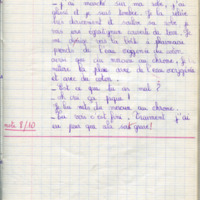 - j'ai marché sur ma côte, j'ai
glissé et je suis tombée. Je lui retire
ses doucement et retire sa côte je
vois une égratignure couverte de terre. Je
me dirige vers la boîte à pharmacie
prends de l'eau oxygénée du coton
ainsi que du mercure au chrome. Je
nettoie la plaie avec de l'eau oxygénée
et avec du coton.
- Est ce que tu as mal ?
- oh oui ça pique !
Je lui mets du mercure au chrome.
- La voilà c'est fini. Vraiment j'ai
eu peur que cela soit grave !
note 8/10